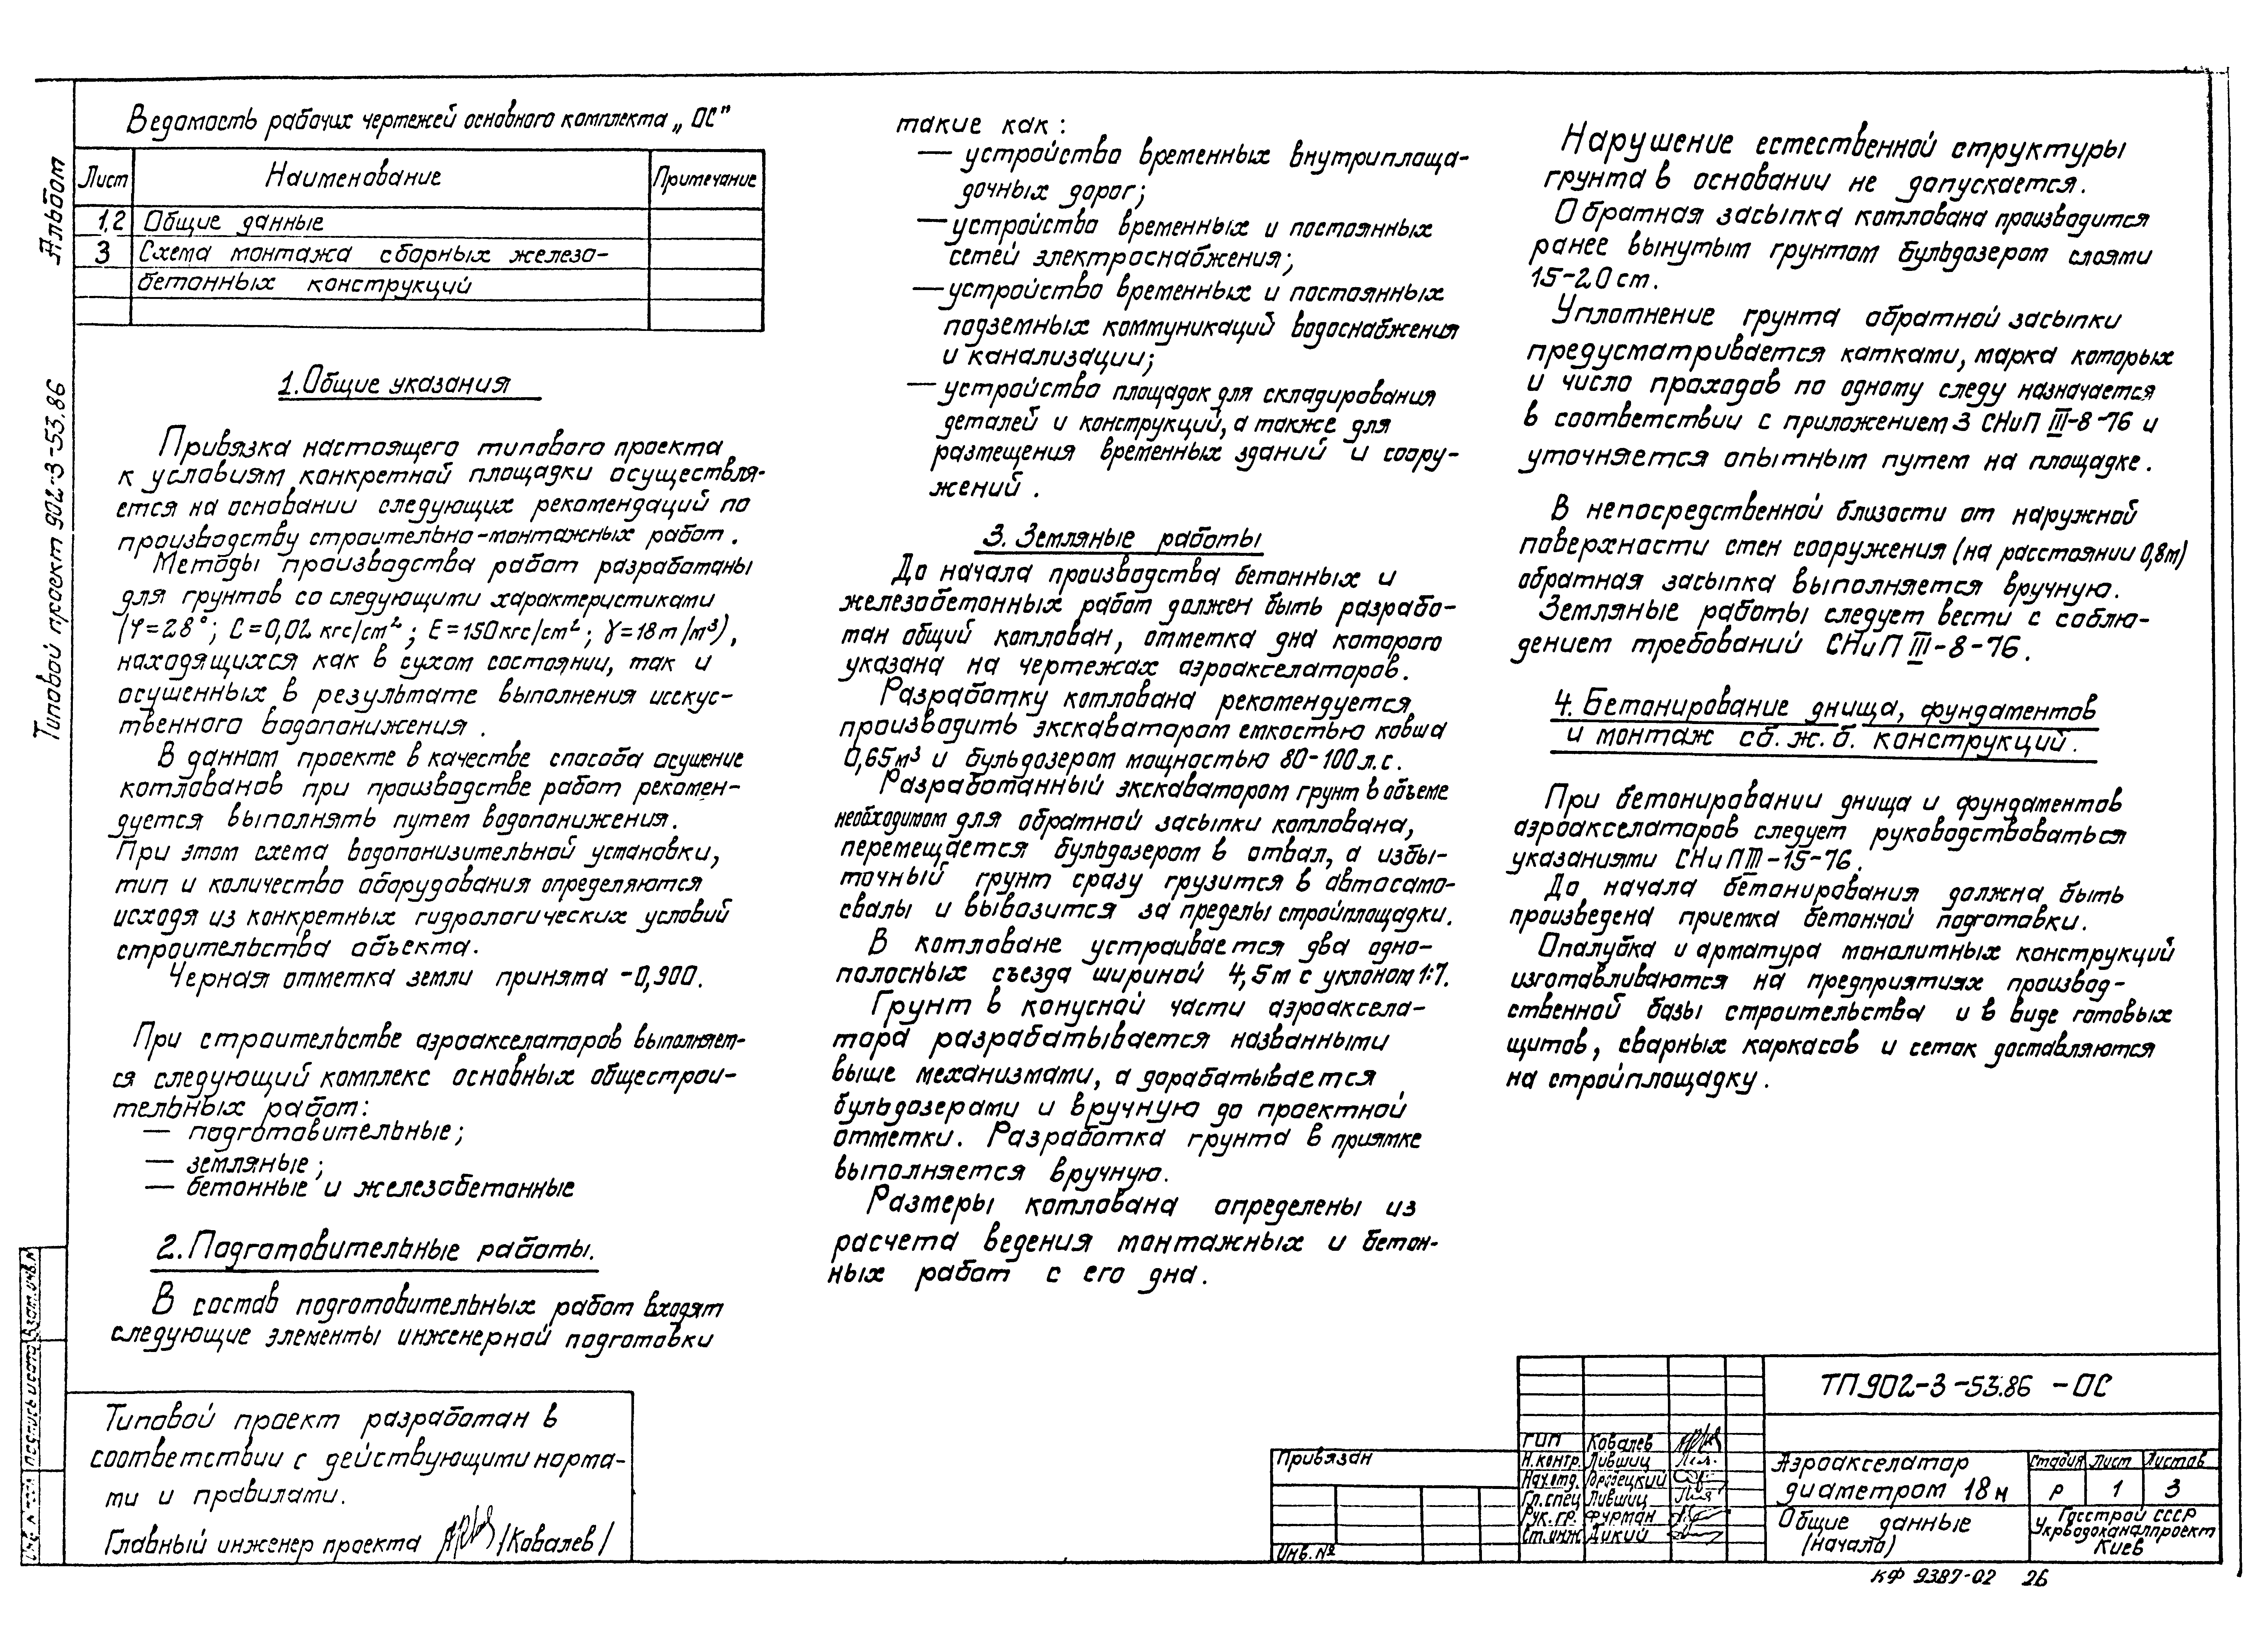 Альбом
Типовой проект 902-3-53.86
Ведомость рабочих чертежей основного комплекта „ОС"
Лист Наименование Примечание
1,2 Общие данные
3 Схема монтажа сборных железо-
бетонных конструкций
1. Общие указания
Привязка настоящего типового проекта
к условиям конкретной площадки осуществля-
ется на основании следующих рекомендаций по
производству строительно-монтажных работ.
Методы производства работ разработаны
для грунтов со следующими характеристиками
(φ=28°; С=0,02 кгс/см²; Е=150кгс/см²; γ=18т/м³),
находящихся как в сухом состоянии, так и
осушенных в результате выполнения исскус-
ственного водопонижения.
В данном проекте в качестве способа осушение
котлованов при производстве работ рекомен-
дуется выполнять путем водопонижения.
При этом схема водопонизительной установки,
тип и количество оборудования определяются
исходя из конкретных гидрологических условий
строительства объекта.
Черная отметка земли принята -0,900.
При строительстве аэроакселаторов выполняет-
ся следующий комплекс основных общестрои-
тельных работ:
— подготовительные;
— земляные;
— бетонные и железобетонные
2. Подготовительные работы.
В состав подготовительных работ входят
следующие элементы инженерной подготовки
Типовой проект разработан в
соответствии с действующими норма-
ми и правилами.
Главный инженер проекта /Ковалев/
такие как:
— устройство временных внутриплоща-
дочных дорог;
— устройство временных и постоянных
сетей электроснабжения;
— устройство временных и постоянных
подземных коммуникаций водоснабжения
и канализации;
— устройство площадок для складирования
деталей и конструкций, а также для
размещения временных зданий и соору-
жений.
3. Земляные работы
До начала производства бетонных и
железобетонных работ должен быть разрабо-
тан общий котлован, отметка дна которого
указана на чертежах аэроакселаторов.
Разработку котлована рекомендуется
производить экскаватором емкостью ковша
0,65м³ и бульдозером мощностью 80-100 л.с.
Разработанный экскаватором грунт в объеме
необходимом для обратной засыпки котлована,
перемещается бульдозером в отвал, а избы-
точный грунт сразу грузится в автосамо-
свалы и вывозится за пределы стройплощадки.
В котловане устраивается два одно-
полосных съезда шириной 4,5м с уклоном 1:7.
Грунт в конусной части аэроаксела-
тора разрабатывается названными
выше механизмами, а дорабатывается
бульдозерами и вручную до проектной
отметки. Разработка грунта в приямке
выполняется вручную.
Размеры котлована определены из
расчета ведения монтажных и бетон-
ных работ с его дна.
Нарушение естественной структуры
грунта в основании не допускается.
Обратная засыпка котлована производится
ранее вынутым грунтом бульдозером слоями
15-20 см.
Уплотнение грунта обратной засыпки
предусматривается катками, марка которых
и число проходов по одному следу назначается
в соответствии с приложением 3 СНиП III-8-76 и
уточняется опытным путем на площадке.
В непосредственной близости от наружной
поверхности стен сооружения (на расстоянии 0,8м)
обратная засыпка выполняется вручную.
Земляные работы следует вести с соблю-
дением требований СНиП III-8-76.
4. Бетонирование днища, фундаментов
и монтаж сб. ж. б. конструкций.
При бетонировании днища и фундаментов
аэроакселаторов следует руководствоваться
указаниями СНиП III-15-76.
До начала бетонирования должна быть
произведена приемка бетонной подготовки.
Опалубка и арматура монолитных конструкций
изготавливаются на предприятиях производ-
ственной базы строительства и в виде готовых
щитов, сварных каркасов и сеток доставляются
на стройплощадку.
Привязан
Инв.№
ГИП Ковалев
Н.контр. Лившиц
Нач.отд. Бродецкий
Гл.спец Лившиц
Рук.гр. Фурман
Ст.инж. Дикий
ТП 902-3-53.86 - ОС
Аэроакселатор
диаметром 18м
Стадия Лист Листов
Р 1 3
Общие данные
(начало)
Госстрой СССР
Укрводоканалпроект
Киев
КФ 9387-02 26